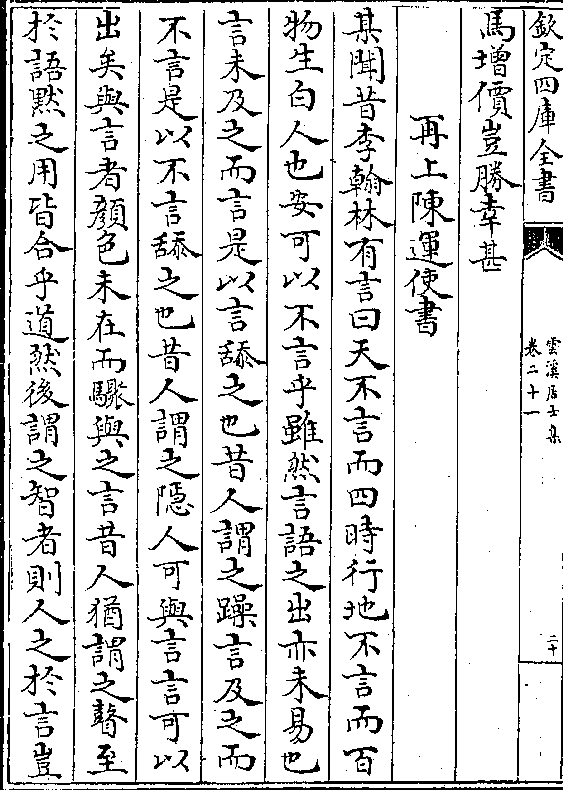 欽定四庫全書
雲溪居士集
卷二十一
二十
馬增價豈勝幸甚
再上陳運使書
某聞昔李翰林有言曰天不言而四時行地不言而百
物生白人也安可以不言乎雖然言語之出亦未易也
言未及之而言是以言餂之也昔人謂之躁言及之而
不言是以不言餂之也昔人謂之隠人可與言言可以
出矣與言者顔色未在而驟與之言昔人猶謂之瞽至
於語黙之用皆合乎道然後謂之智者則人之於言豈